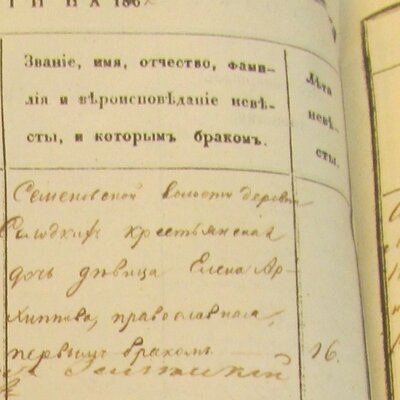 Званіе, имя, отчество, фами-
лія и вѣроисповѣданіе невѣ-
сты, и которымъ бракомъ.
Лѣта
невѣ-
сты.
Семеновской волости деревни
крестьянская
дочь дѣвица Елена Ар-
хиппова, православная,
первымъ бракомъ
16.